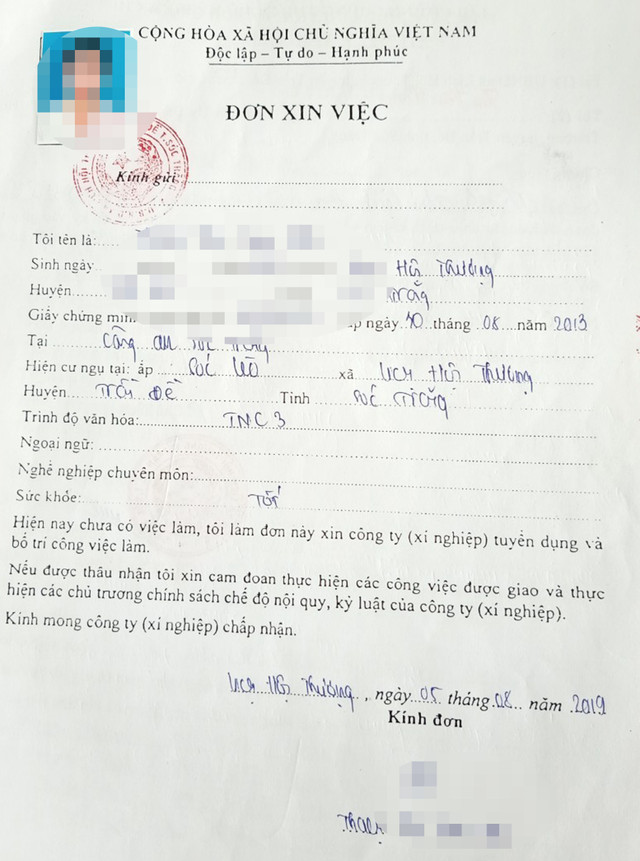 CỘNG HÒA XÃ HỘI CHỦ NGHĨA VIỆT NAM
Độc lập – Tự do – Hạnh phúc
ĐƠN XIN VIỆC
Kính gửi
Tôi tên là:
Sinh ngày Hội Thượng
Huyện Trăng
Giấy chứng min ấp ngày 30 tháng 08 năm 2013
Tại Công an Sóc Trăng
Hiện cư ngụ tại: ấp Sóc xã Lịch Hội Thượng
Huyện Trần Đề Tỉnh Sóc Trăng
Trình độ văn hóa: TNC3
Ngoại ngữ:
Nghề nghiệp chuyên môn:
Sức khỏe: Tốt
Hiện nay chưa có việc làm, tôi làm đơn này xin công ty (xí nghiệp) tuyển dụng và
bố trí công việc làm.
Nếu được thâu nhận tôi xin cam đoan thực hiện các công việc được giao và thực
hiện các chủ trương chính sách chế độ nội quy, kỷ luật của công ty (xí nghiệp).
Kính mong công ty (xí nghiệp) chấp nhận.
Lịch Hội Thượng, ngày 05 tháng 08 năm 2019
Kính đơn
Thạch